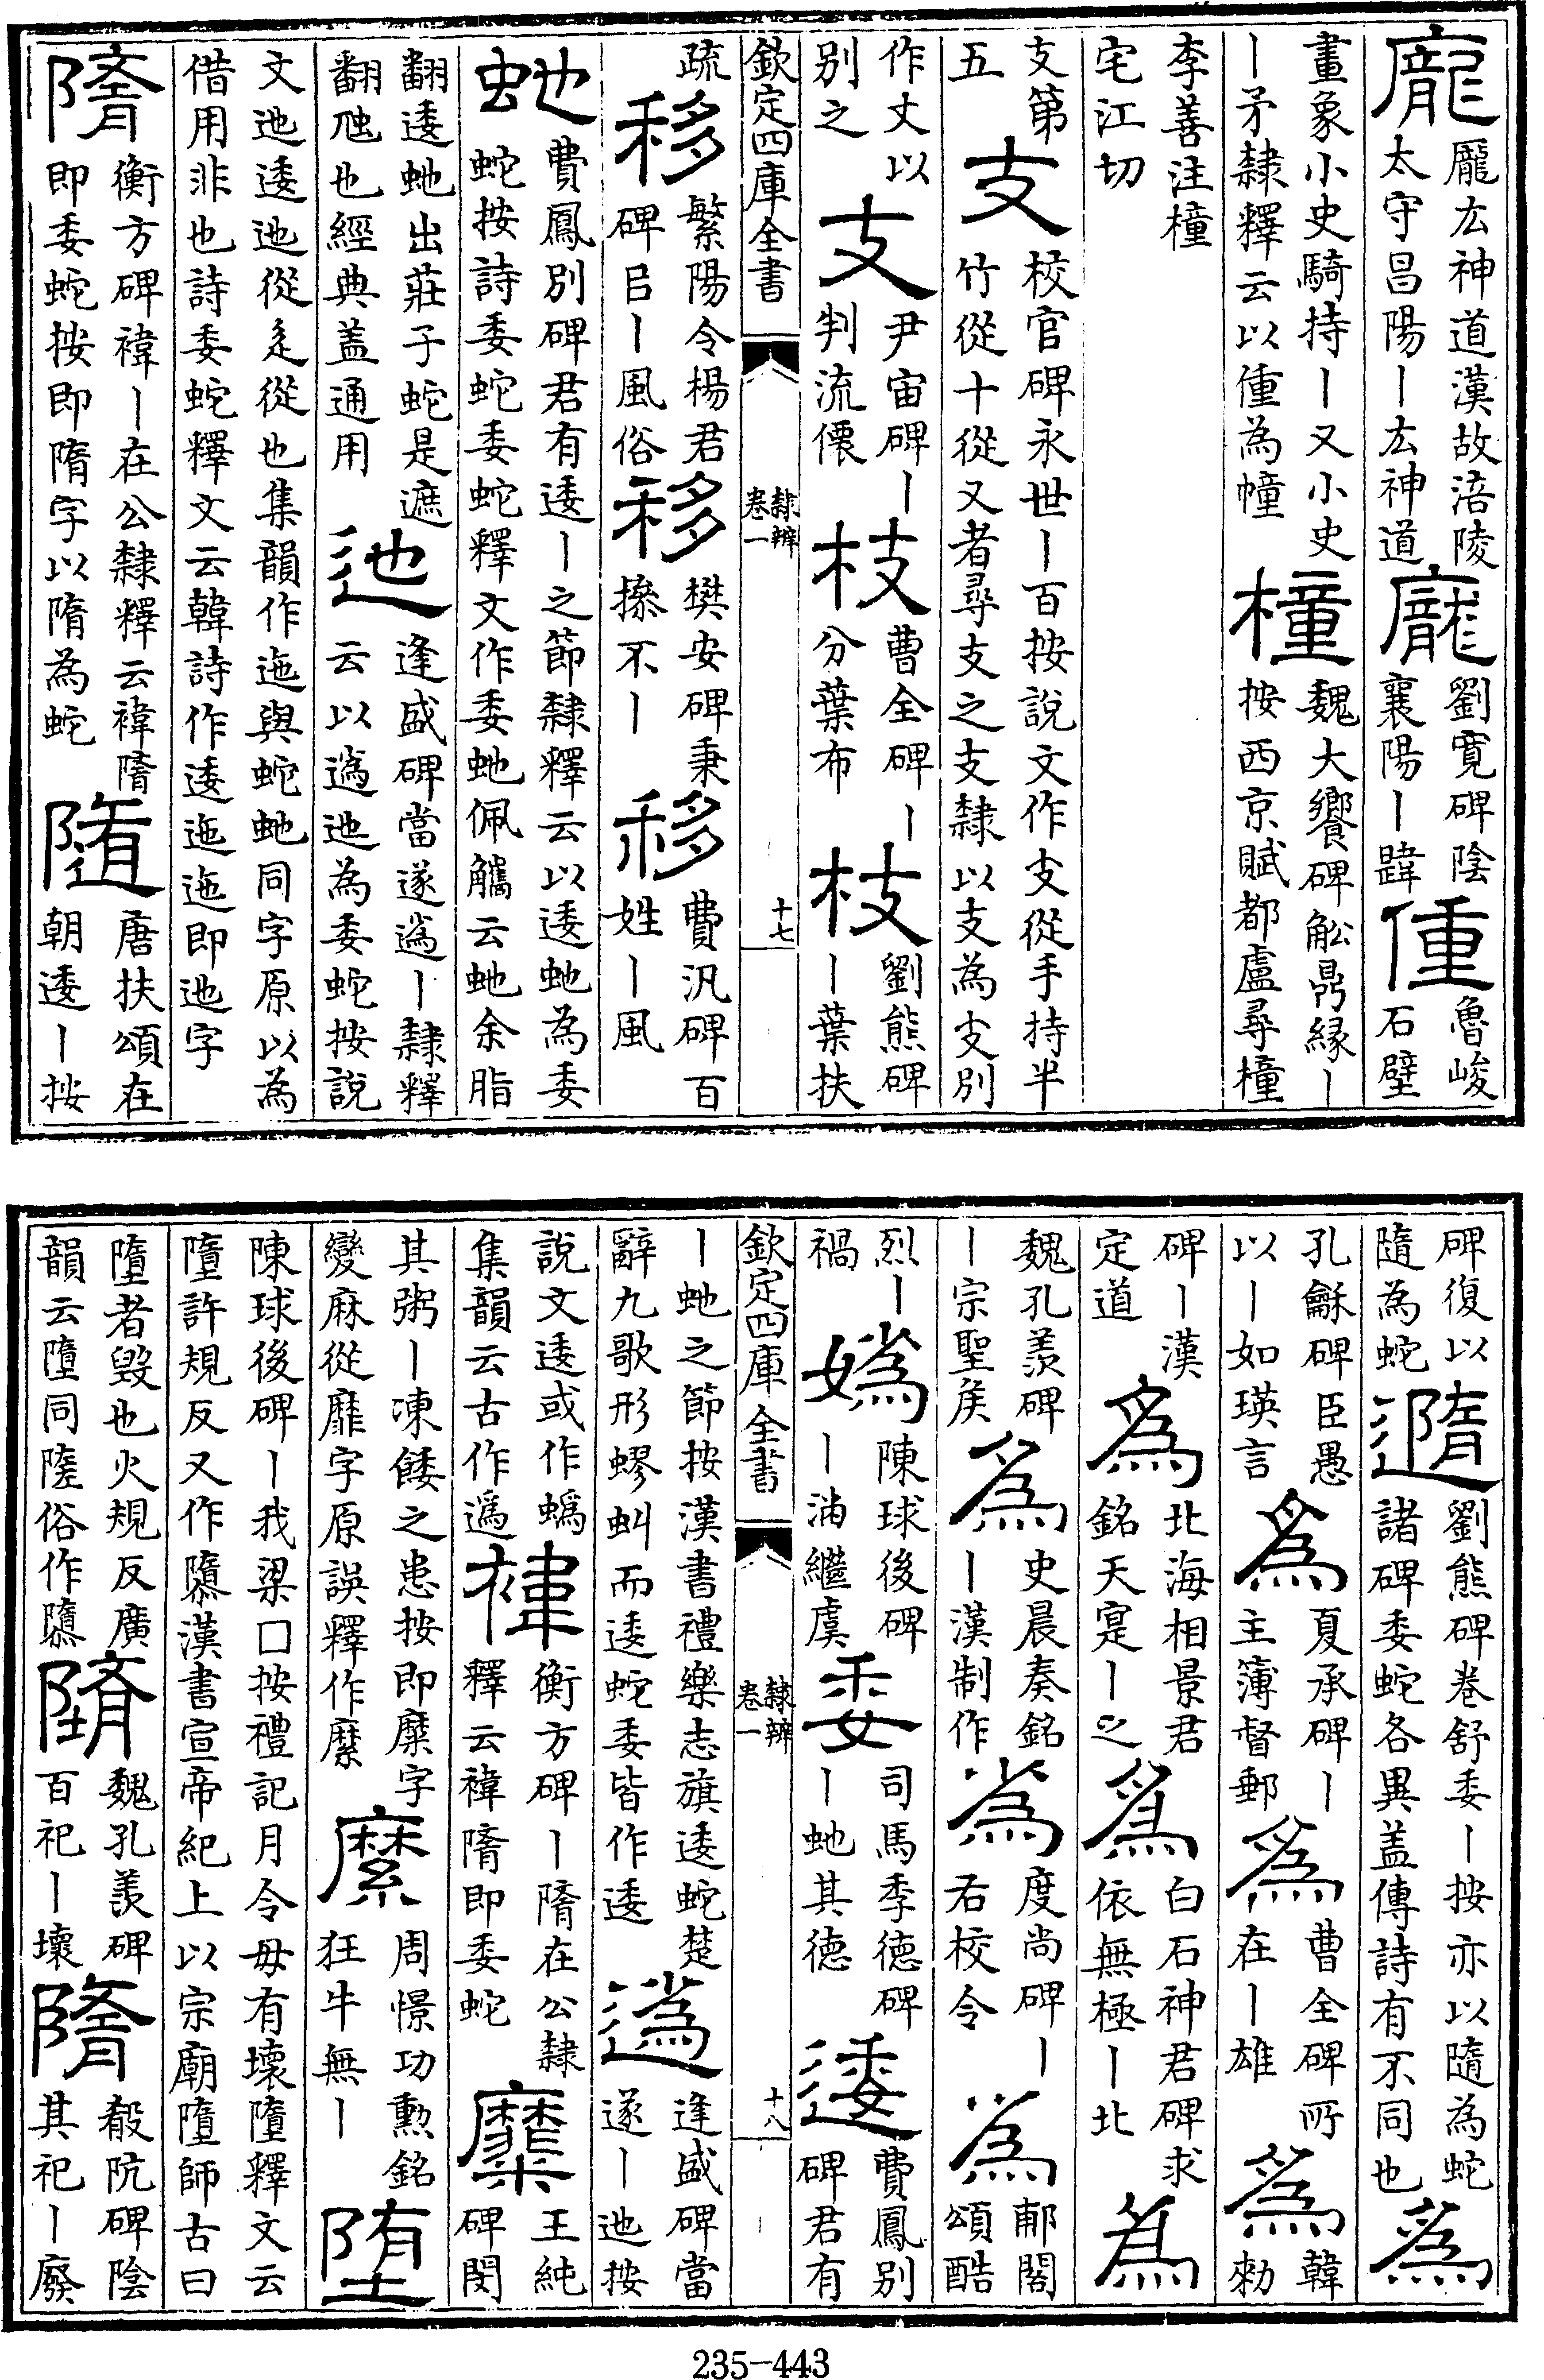 龐
龎厷神道漢故涪陵
太守昌陽丨厷神道
龐
劉寬碑陰
襄陽丨
偅
魯峻
石壁
畫象小史騎持丨又小史
丨矛隸釋云以偅為幢
橦
魏大饗碑舩鼎緣丨
按西京賦都盧尋橦
李善注橦
宅江切
支第
五
支
校官碑永世丨百按說文作支從手持半
竹從十從又者尋支之支隸以支為支別
作丈以
別之
支
尹宙碑丨
判流僄
枝
曹全碑丨
分葉布
枝
劉熊碑
丨葉扶
欽定四庫全書
隸辨
卷一
十七
疏
移
繁陽令楊君
碑㠯丨風俗
移
樊安碑秉
不丨
移
費汎碑百
姓丨風
虵
費鳳別碑君有逶丨之節隸釋云以逶虵為委
蛇按詩委蛇委蛇釋文作委虵佩觿云虵余脂
翻逶虵出莊子蛇是遮
翻虺也經典盖通用
迆
逢盛碑當遂䢿丨隸釋
云以䢿迆為委蛇按說
文迆逶迆從辵從也集韻作迤與蛇虵同字原以為
借用非也詩委蛇釋文云韓詩作逶迤迤即迆字
隋
衡方碑禕丨在公隸釋云禕隋
即委蛇按即隋字以隋為蛇
隨
唐扶頌在
朝逶丨按
碑復以
隨為蛇
隨
劉熊碑卷舒委丨按亦以隨為蛇
諸碑委蛇各異盖傳詩有不同也
為
孔龢碑臣愚
以丨如瑛言
為
夏承碑丨
主簿督郵
為
曹全碑所
在丨雄
為
韓
勑
碑丨漢
定道
為
北海相景君
銘天寔丨之
為
白石神君碑求
依無極丨北
為
魏孔羨碑
丨宗聖侯
為
史晨奏銘
丨漢制作
為
度尚碑丨
右校令
為
郙閣
頌酷
烈丨
禍
媯
陳球後碑
丨汭繼虞
委
司馬季德碑
丨虵其德
逶
費鳳別
碑君有
欽定四庫全書
隸辨
卷一
十八
丨虵之節按漢書禮樂志旗逶蛇楚
辭九歌形蟉虯而逶蛇委皆作逶
䢿
逢盛碑當
遂丨迆按
說文逶或作蟡
集韻云古作䢿
禕
衡方碑丨隋在公隸
釋云禕隋即委蛇
糜
王純
碑閔
其粥丨凍餧之患按即糜字
變麻從靡字原誤釋作縻
縻
周憬功勲銘
狂牛無丨
堕
陳球後碑丨我梁口按禮記月令毋有壞墮釋文云
墮許規反又作隳漢書宣帝紀上以宗廟墮師古曰
墮者毀也火規反廣
韻云墮同隓俗作隳
墮
魏孔羨碑
百祀丨壞
隋
殽阬碑陰
其祀丨廢
235-443